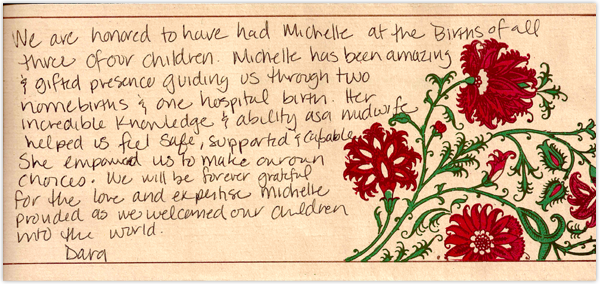 We are honored to have had Michelle at the Births of all
three of our children. Michelle has been amazing
& gifted presence guiding us through two
homebirths & one hospital birth. Her
incredible Knowledge & ability as a midwife
helped us feel safe, supported & capable.
She empowered us to make our own
choices. We will be forever grateful
for the love and expertise Michelle
provided as we welcomed our children
into the world.
Dara